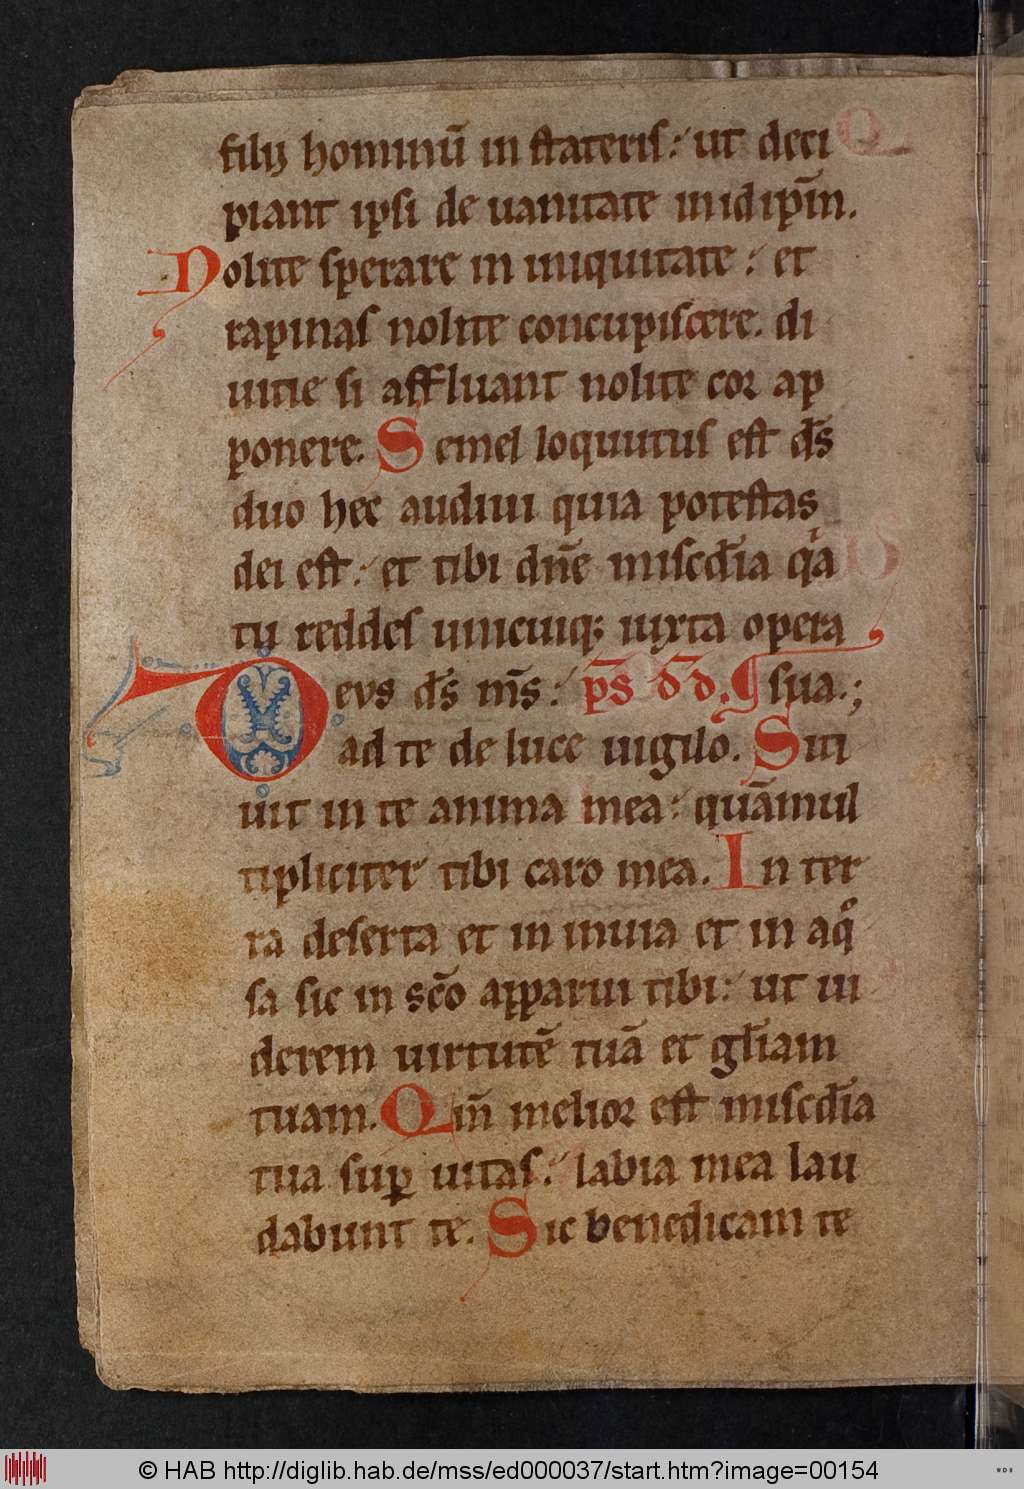 filij hominū in stateris: ut deci
piant ipsi de uanitate inidip̄m.
Nolite sperare in iniquitate: et
rapinas nolite concupiscere. di
uitie si affluant nolite cor ap
ponere. Semel loquutus est d̄s
duo hec audiui quia potestas
dei est: et tibi dn̄e misc̄dia qia
tu reddes unicuiq; iuxta opera
Deus d̄s m̄s: p̄s d̄d. ¶ sua.;
ad te de luce uigilo. Siti
uit in te anima mea: quāmul
tipliciter tibi caro mea. In ter
ra deserta et in inuia et in aqͦ
sa sic in sc̄o apparui tibi: ut ui
derem uirtutē tuā et gl̄iam
tuam. Qm̄ melior est misc̄dia
tua suꝑ uitas: labia mea lau
dabunt te. Sic benedicam te
© HAB http://diglib.hab.de/mss/ed000037/start.htm?image=00154